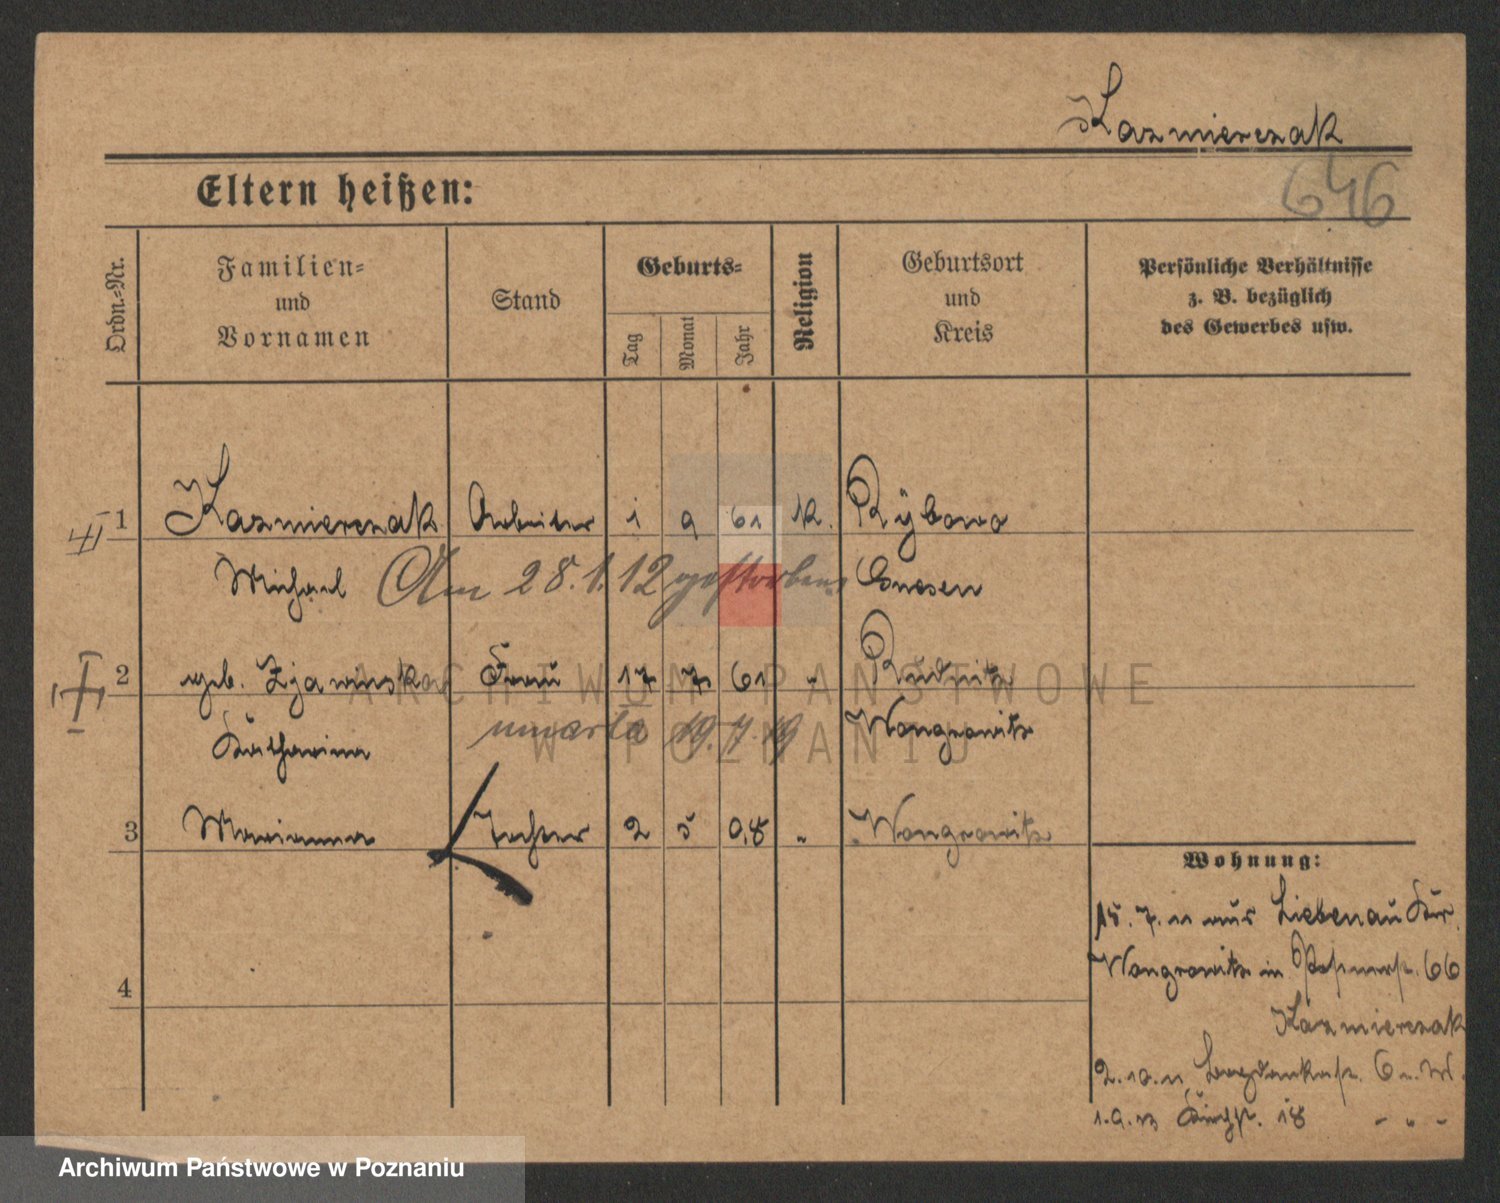 Kazmierczak
646
Eltern heißen:
Ordn.-Nr.
Familien-
und
Vornamen
Stand
Geburts-
Tag
Monat
Jahr
Religion
Geburtsort
und
Kreis
Persönliche Verhältnisse
z. B. bezüglich
des Gewerbes usw.
1 Kazmierczak Arbeiter 1 9 61 k. Rybowo
Michael Am 28.1.12 gestorben Gnesen
2 geb. Zjawinska Frau 17 7 61 " Rudnitz
Katharina umarła 19.7.19 Wongrowitz
3 Marianna Tochter 2 5 08 " Wongrowitz
4
Wohnung:
15.7.11 aus Liebenau Kr.
Wongrowitz in Posenerst. 66
Kazmierczak
2.10.11 Bogdankastr. 6 b. W.
1.9.13 18 " " "
ARCHIWUM PAŃSTWOWE
W POZNANIU
Archiwum Państwowe w Poznaniu